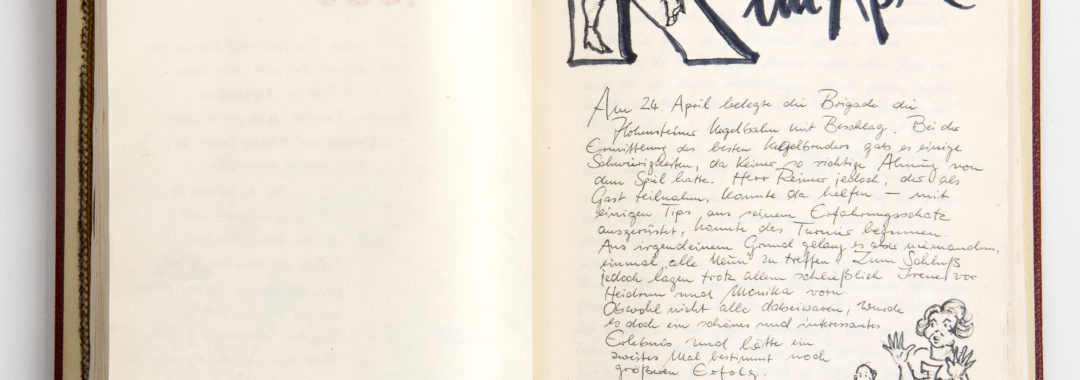 im April
Am 24. April belegte die Brigade die
Hohensteiner Kegelbahn mit Beschlag. Bei der
Ermittlung des besten Kegelbruders gab es einige
Schwierigkeiten, da Keiner so richtige Ahnung von
dem Spiel hatte. Herr Reimer jedoch, der als
Gast teilnahm, konnte da helfen – mit
einigen Tips aus seinem Erfahrungsschatz
ausgerüstet, konnte das Turnier beginnen.
Aus irgendeinem Grund gelang es aber niemandem,
einmal „alle Neun“ zu treffen. Zum Schluß
jedoch lagen trotz allem schließlich Irene vor
Heidrun und Monika vorn.
Obwohl nicht alle dabeiwaren, wurde
es doch ein schönes und interessantes
Erlebnis und hätte ein
zweites Mal bestimmt noch
größeren Erfolg.